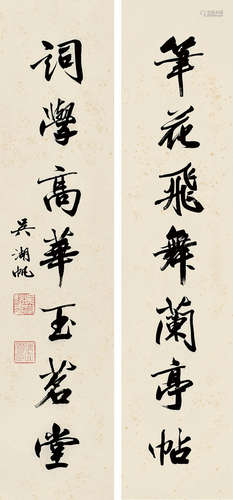 筆花飛舞蘭亭帖
詞學高華玉茗堂
吳湖帆